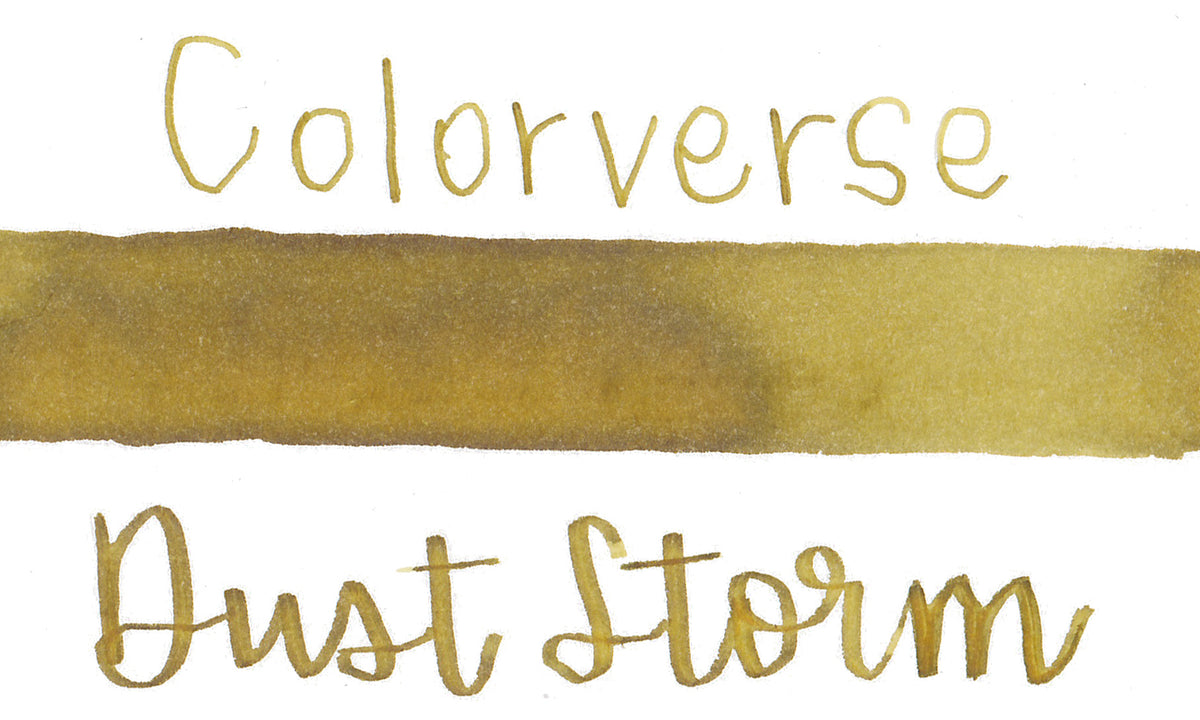 Colorverse
Dust Storm